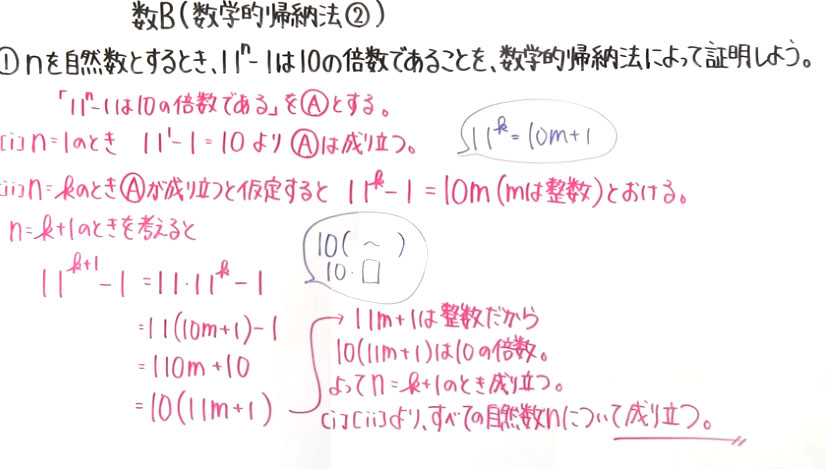 数B(数学的帰納法②)
①nを自然数とするとき、11ⁿ-1は10の倍数であることを、数学的帰納法によって証明しよう。
「11ⁿ-1は10の倍数である」をⒶとする。
[i]n=1のとき 11¹-1=10より Ⓐは成り立つ。
11ᵏ=10m+1
[ii]n=kのときⒶが成り立つと仮定すると 11ᵏ-1=10m(mは整数)とおける。
n=k+1のときを考えると
11ᵏ⁺¹-1=11・11ᵏ-1
10(~)
10・□
=11(10m+1)-1
=110m+10
=10(11m+1)
→11m+1は整数だから
10(11m+1)は10の倍数。
よってn=k+1のとき成り立つ。
[i][ii]より、すべての自然数nについて成り立つ。